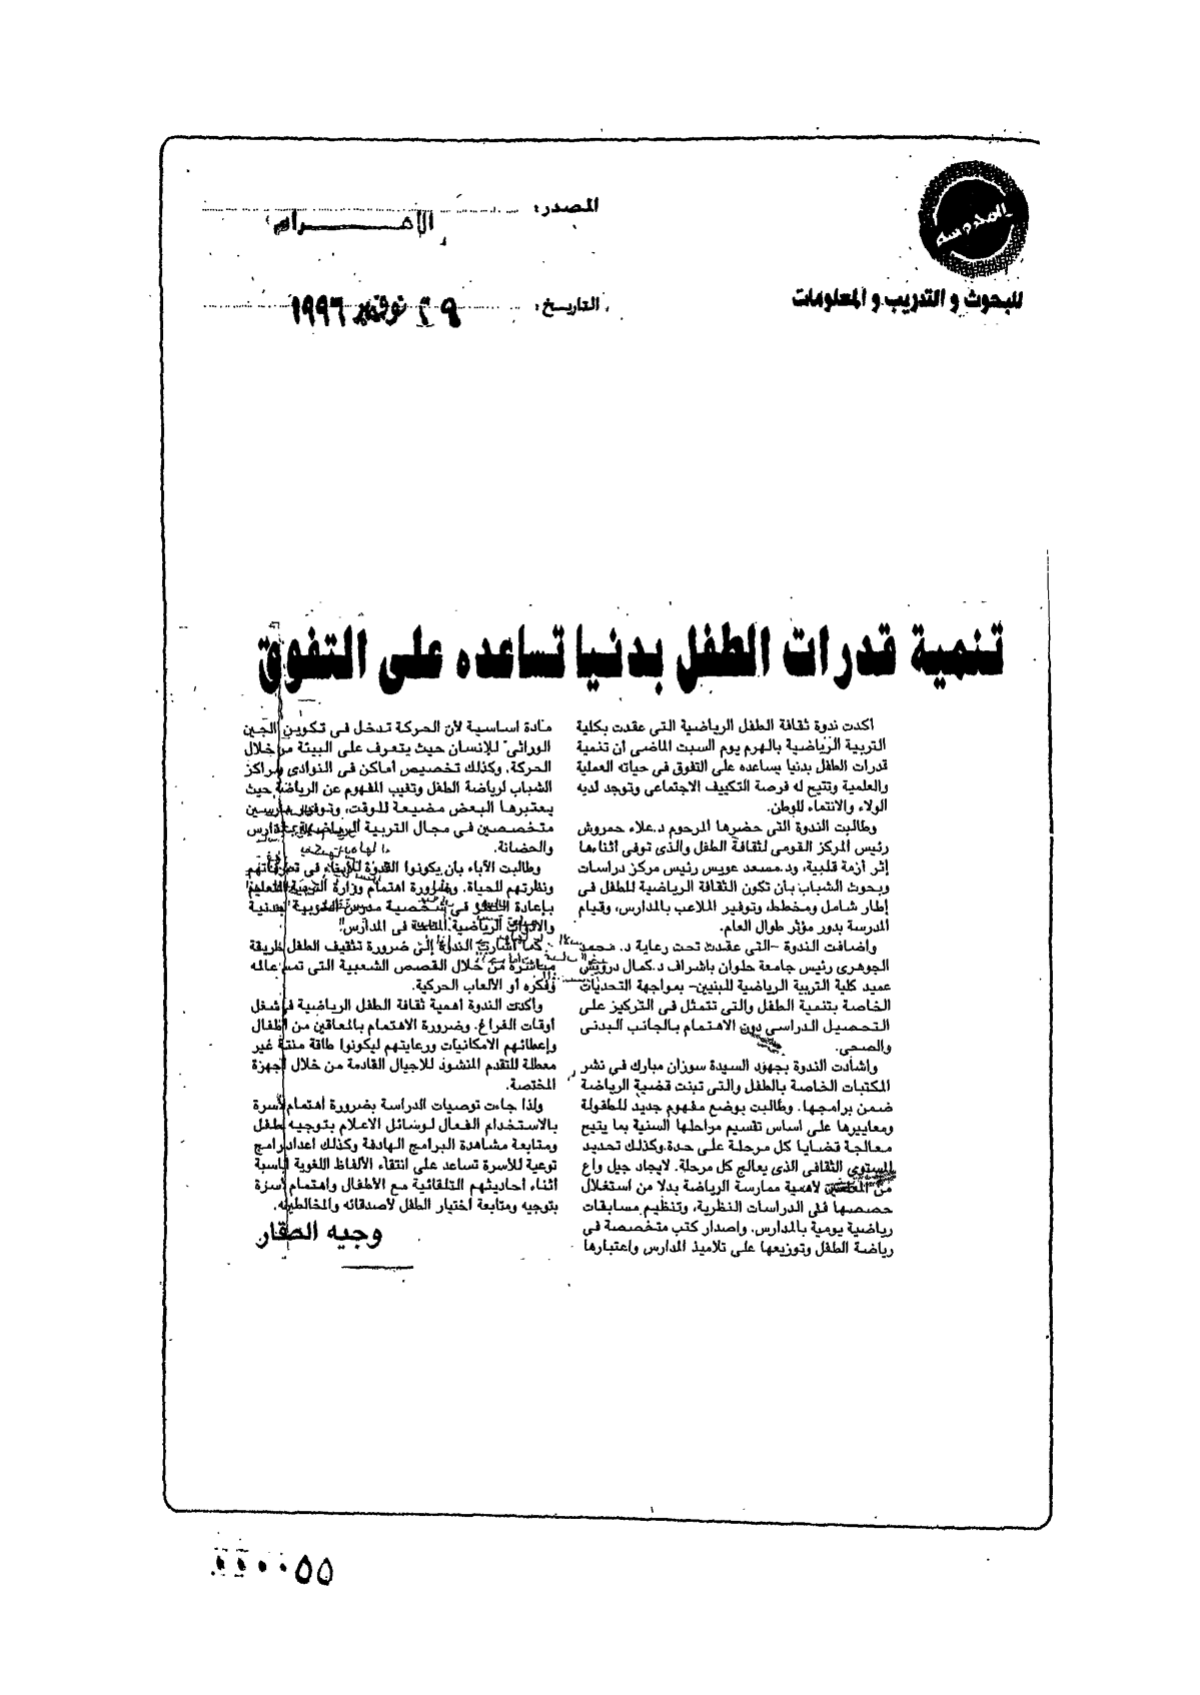 المدروسة
للبحوث و التدريب و المعلومات
المصدر:
الأهرام
التاريخ:
٢٩ نوفمبر ١٩٩٦
تنمية قدرات الطفل بدنيا تساعده على التفوق
اكدت ندوة ثقافة الطفل الرياضية التى عقدت بكلية
التربية الرياضية بالهرم يوم السبت الماضى ان تنمية
قدرات الطفل بدنيا يساعده على التفوق فى حياته العملية
والعلمية وتتيح له فرصة التكييف الاجتماعى وتوجد لديه
الولاء والانتماء للوطن.
وطالبت الندوة التى حضرها المرحوم د.علاء حمروش
رئيس المركز القومى لثقافة الطفل والذى توفى أثناءها
إثر أزمة قلبية، ود.مسعد عويس رئيس مركز دراسات
وبحوث الشباب بأن تكون الثقافة الرياضية للطفل فى
إطار شامل ومخطط، وتوفير الملاعب بالمدارس، وقيام
المدرسة بدور مؤثر طوال العام.
واضافت الندوة -التى عقدت تحت رعاية د. محمد
الجوهرى رئيس جامعة حلوان باشراف د.كمال درويش
عميد كلية التربية الرياضية للبنين- بمواجهة التحديات
الخاصة بتنمية الطفل والتى تتمثل فى التركيز على
التحصيل الدراسى دون الاهتمام بالجانب البدنى
والصحى.
واشادت الندوة بجهود السيدة سوزان مبارك فى نشر
المكتبات الخاصة بالطفل والتى تبنت قضية الرياضة
ضمن برامجها. وطالبت بوضع مفهوم جديد للطفولة
ومعاييرها على اساس تقسيم مراحلها السنية بما يتيح
معالجة قضايا كل مرحلة على حدة.وكذلك تحديد
المستوى الثقافى الذى يعالج كل مرحلة. لايجاد جيل واع
من المعلمين لأهمية ممارسة الرياضة بدلا من استغلال
حصصها فى الدراسات النظرية، وتنظيم مسابقات
رياضية يومية بالمدارس. واصدار كتب متخصصة فى
رياضة الطفل وتوزيعها على تلاميذ المدارس واعتبارها
مادة اساسية لأن الحركة تدخل فى تكوين الجين
الوراثى للإنسان حيث يتعرف على البيئة من خلال
الحركة. وكذلك تخصيص أماكن فى النوادى ومراكز
الشباب لرياضة الطفل وتغيب المفهوم عن الرياضة حيث
يعتبرها البعض مضيعة للوقت، وتوفير مدرسين
متخصصين فى مجال التربية الرياضية بالمدارس
والحضانة.
وطالبت الآباء بأن يكونوا القدوة للأبناء فى تصرفاتهم
ونظرتهم للحياة. وضرورة اهتمام وزارة التربية والتعليم
بإعادة النظر فى شخصية مدرس التربية البدنية
والادوات الرياضية المتاحة فى المدارس
كما أشارت الندوة إلى ضرورة تثقيف الطفل بطريقة
مباشرة من خلال القصص الشعبية التى تمس عالمه
وفكره أو الألعاب الحركية.
وأكدت الندوة اهمية ثقافة الطفل الرياضية فى شغل
أوقات الفراغ. وضرورة الاهتمام بالمعاقين من الأطفال
وإعطائهم الامكانيات ورعايتهم ليكونوا طاقة منتجة غير
معطلة للتقدم المنشود للاجيال القادمة من خلال أجهزة
المختصة.
ولذا جاءت توصيات الدراسة بضرورة اهتمام الأسرة
بالاستخدام الفعال لوسائل الاعلام بتوجيه الطفل
ومتابعة مشاهدة البرامج الهادفة وكذلك اعداد برامج
توعية للأسرة تساعد على انتقاء الألفاظ اللغوية المناسبة
اثناء احاديثهم التلقائية مع الأطفال واهتمام الأسرة
بتوجيه ومتابعة اختيار الطفل لأصدقائه والمخالطين له.
وجيه الصقار